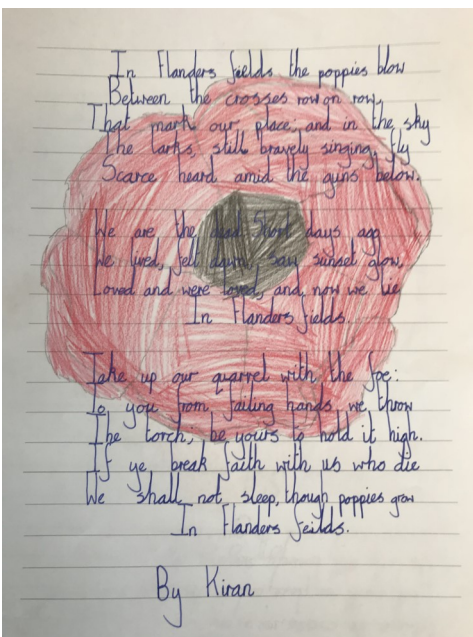 In Flanders fields the poppies blow
Between the crosses row on row,
That mark our place, and in the sky
The larks, still bravely singing, fly
Scarce heard amid the guns below.
We are the dead Short days ago
We lived, felt dawn, saw sunset glow,
Loved and were loved, and now we lie
In Flanders fields.
Take up our quarrel with the foe:
To you from failing hands we throw
The torch, be yours to hold it high.
If ye break faith with us who die
We shall not sleep, though poppies grow
In Flanders feilds.
By Kiran